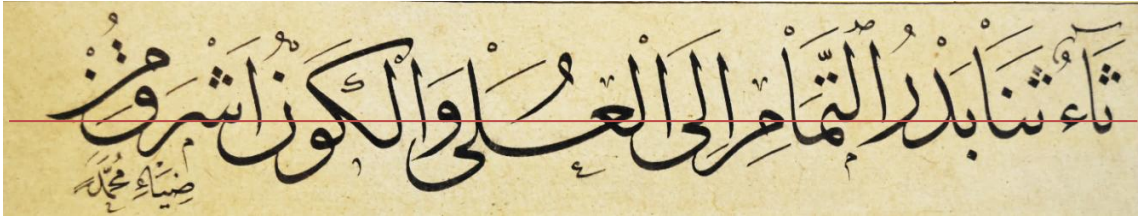 ثَاءُ ثَنَا بَدْرُ التَّمَامِ اِلَى الْعُلَى وَالْكَوْنُ اَشْرَقَ مِنْ
ضِيَاءِ مُحَمَّدٍ